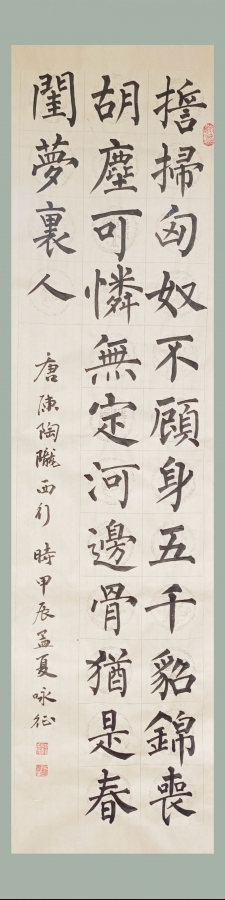 擔掃匈奴不顧身五千貂錦喪
胡塵可憐無定河邊骨猶是春
閨夢裏人
唐陳陶隴西行 時甲辰孟夏 咏征